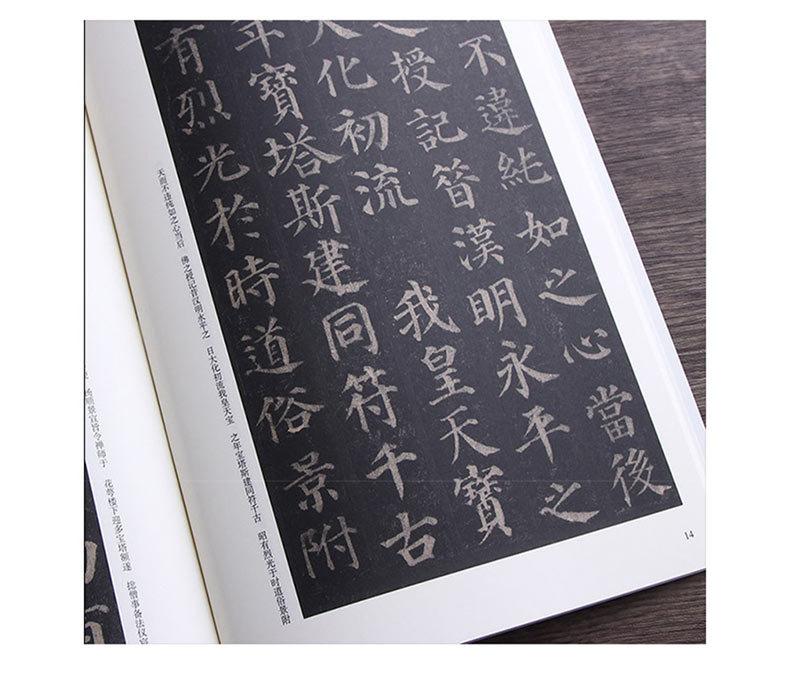 不違純如之心當後
之授記昔漢明永平之
大化初流 我皇天寶
年寶塔斯建同符千古
有烈光於時道俗景附
天而不违纯如之心当后 佛之授记昔汉明永平之 日大化初流我皇天宝 之年宝塔斯建同符千古 昭有烈光于时道俗景附
14
杨顺景宣旨令禅师于 花萼楼下迎多宝塔额遂 捴僧事备法仪宸